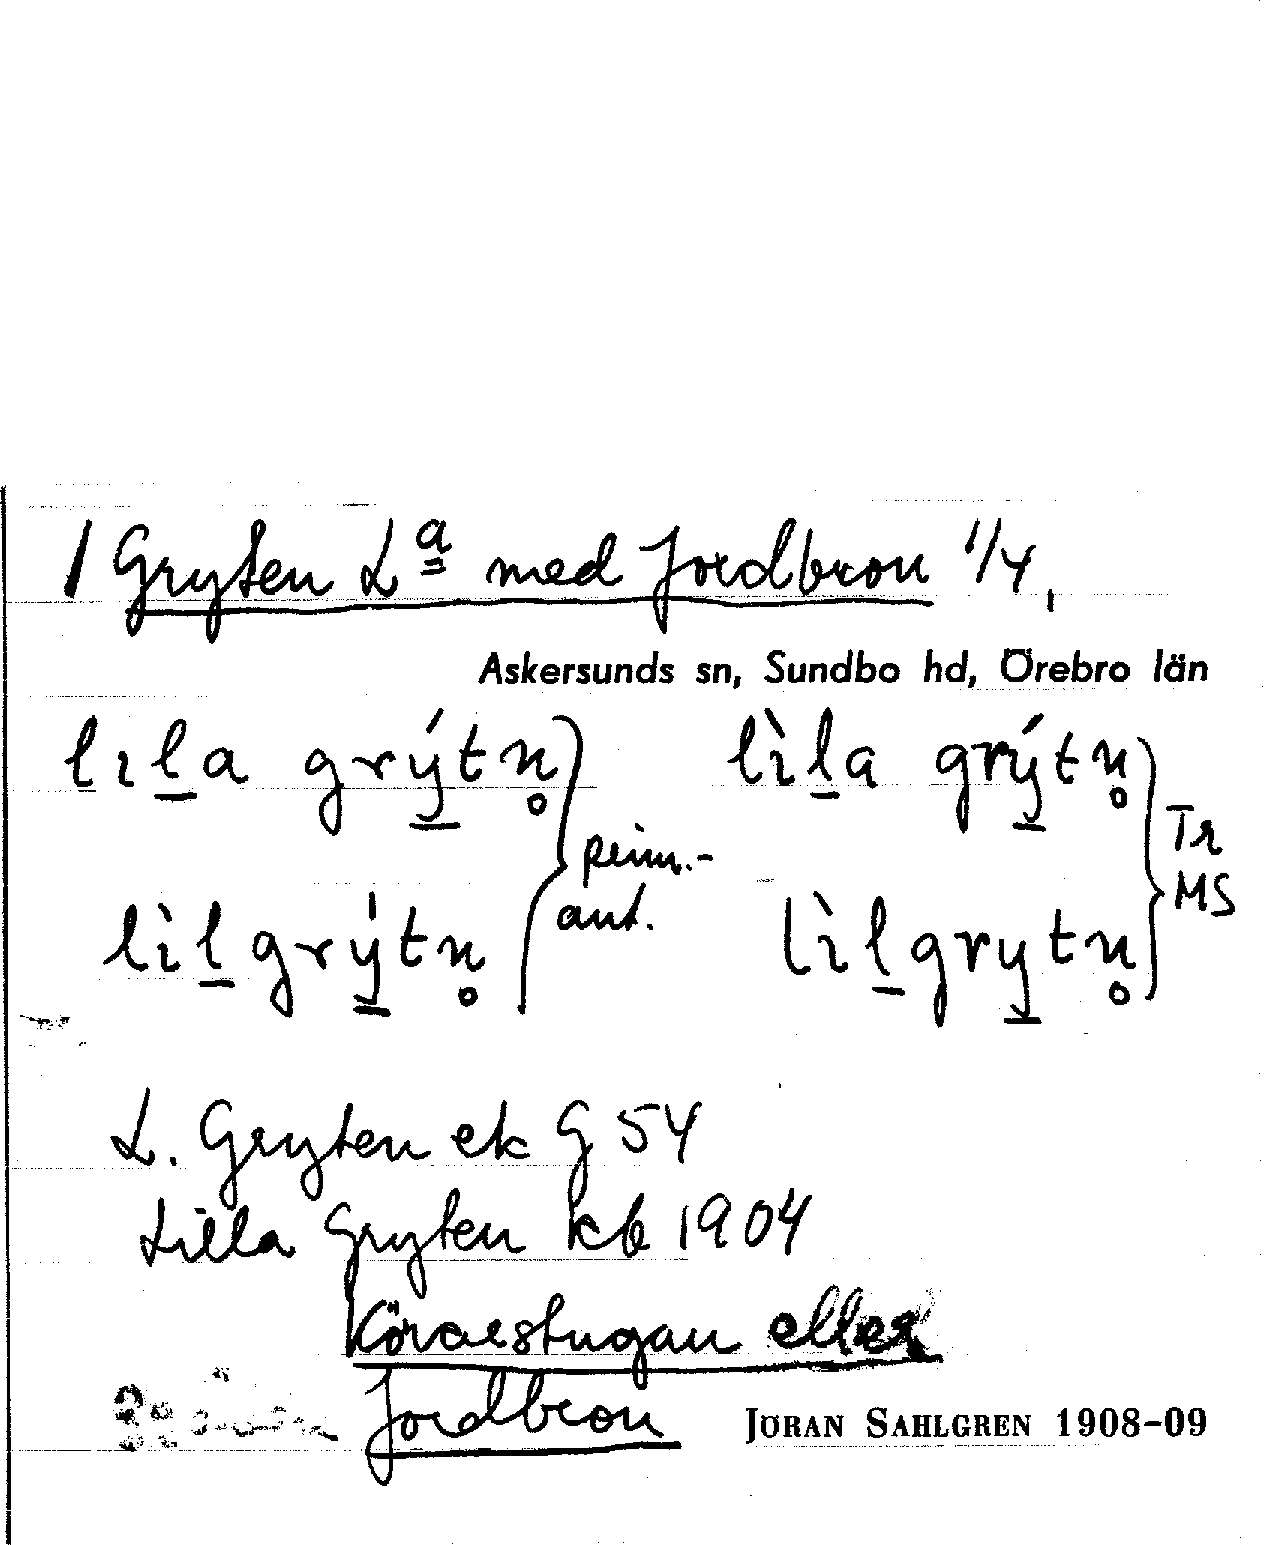 / Gryten Lᵃ med Jordbron 1/4,
Askersunds sn, Sundbo hd, Örebro län
lıl̲a grý̲tn̥ } prim.- lìl̲a grý̲tn̥ } Tr
lìl̲grý̲tn̥ ant. lìl̲gry̲tn̥ MS
L. Gryten ek G 54
Lilla Gryten kb 1904
eller
Jordbron
JÖRAN SAHLGREN 1908-09